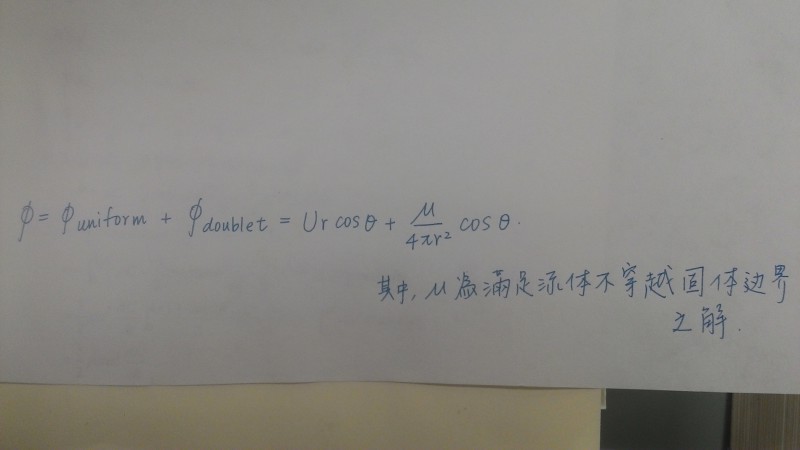 φ = φuniform + φdoublet = Ur cosθ + μ/4πr² cosθ.
其中, μ為滿足流体不穿越固体边界
之解.